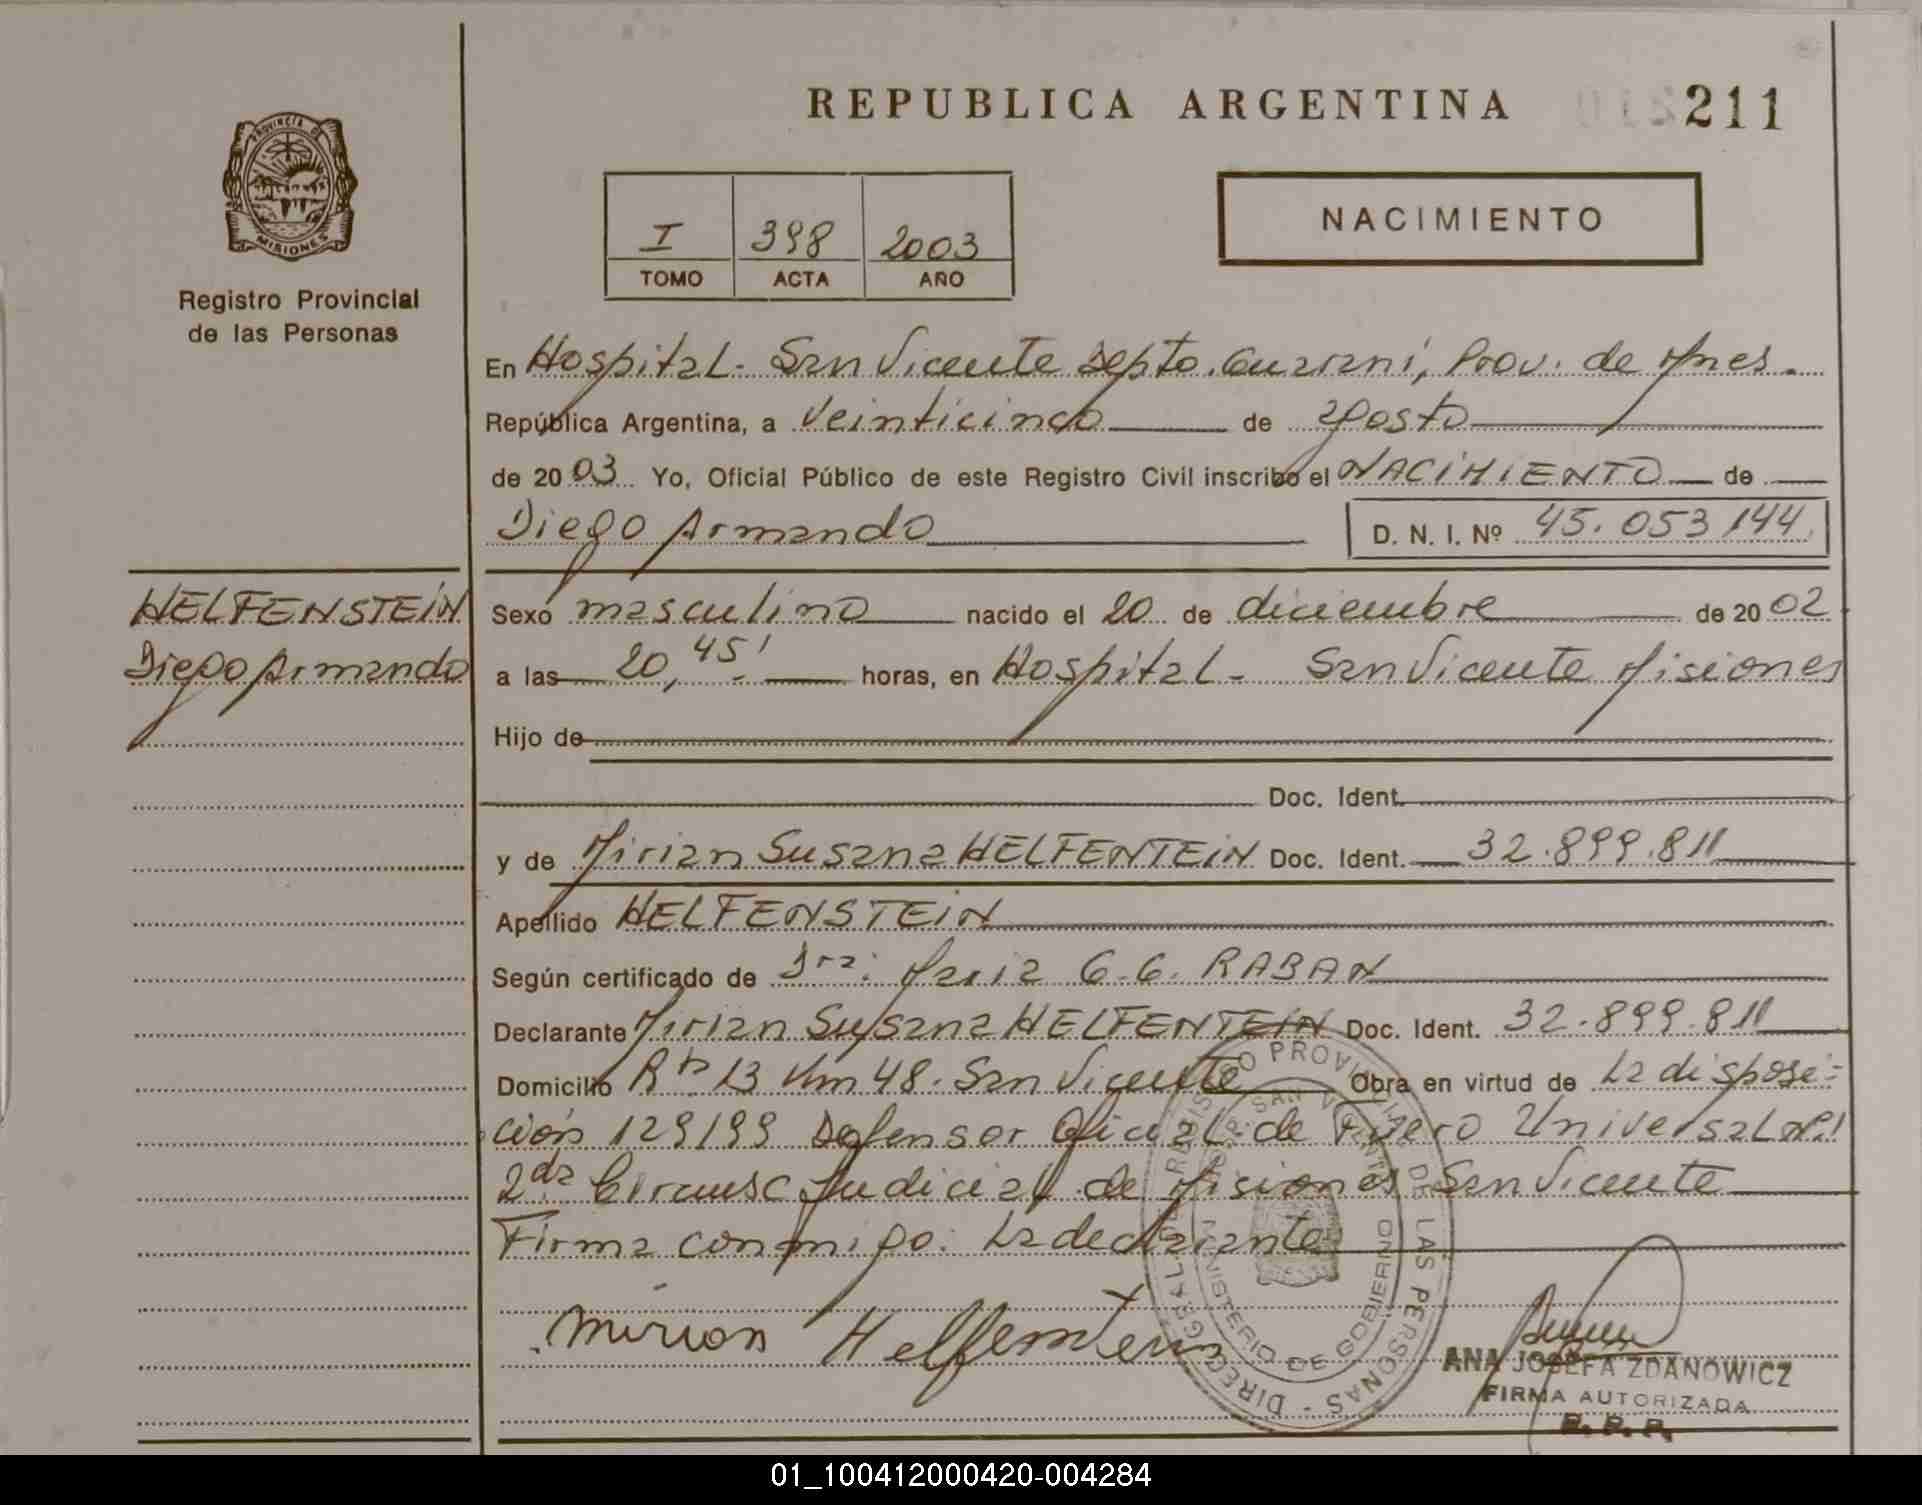 REPUBLICA ARGENTINA
211
PROVINCIA DE
MISIONES
Registro Provincial
de las Personas
I 398 2003
TOMO ACTA AÑO
NACIMIENTO
En Hospital - San Vicente Depto. Guaraní, Prov. de Mnes.
República Argentina, a veinticinco de agosto
de 2003 Yo, Oficial Público de este Registro Civil inscribo el NACIMIENTO de
Diego Armando D. N. I. Nº 45.053.144
HELFENSTEIN
Diego Armando
Sexo masculino nacido el 20 de diciembre de 2002
a las 20,45' horas, en Hospital - San Vicente Misiones
Hijo de
Doc. Ident.
y de Mirian Susana HELFENTEIN Doc. Ident. 32.899.811
Apellido HELFENSTEIN
Según certificado de Dra. María G. G. RABAN
Declarante Mirian Susana HELFENTEIN Doc. Ident. 32.899.811
Domicilio Rta 13 Km 48. San Vicente Obra en virtud de La disposi-
ción 129/99 Defensor Oficial de Fuero Universal Nº1
2da Circunsc Judicial de Misiones San Vicente
Firma conmigo: La declarante
Mirian Helfentein
DIREC. GRAL. DE REGISTRO PROVINCIAL DE LAS PERSONAS
MINISTERIO DE GOBIERNO
ANA JOSEFA ZDANOWICZ
FIRMA AUTORIZADA
R.P.P.
01_100412000420-004284